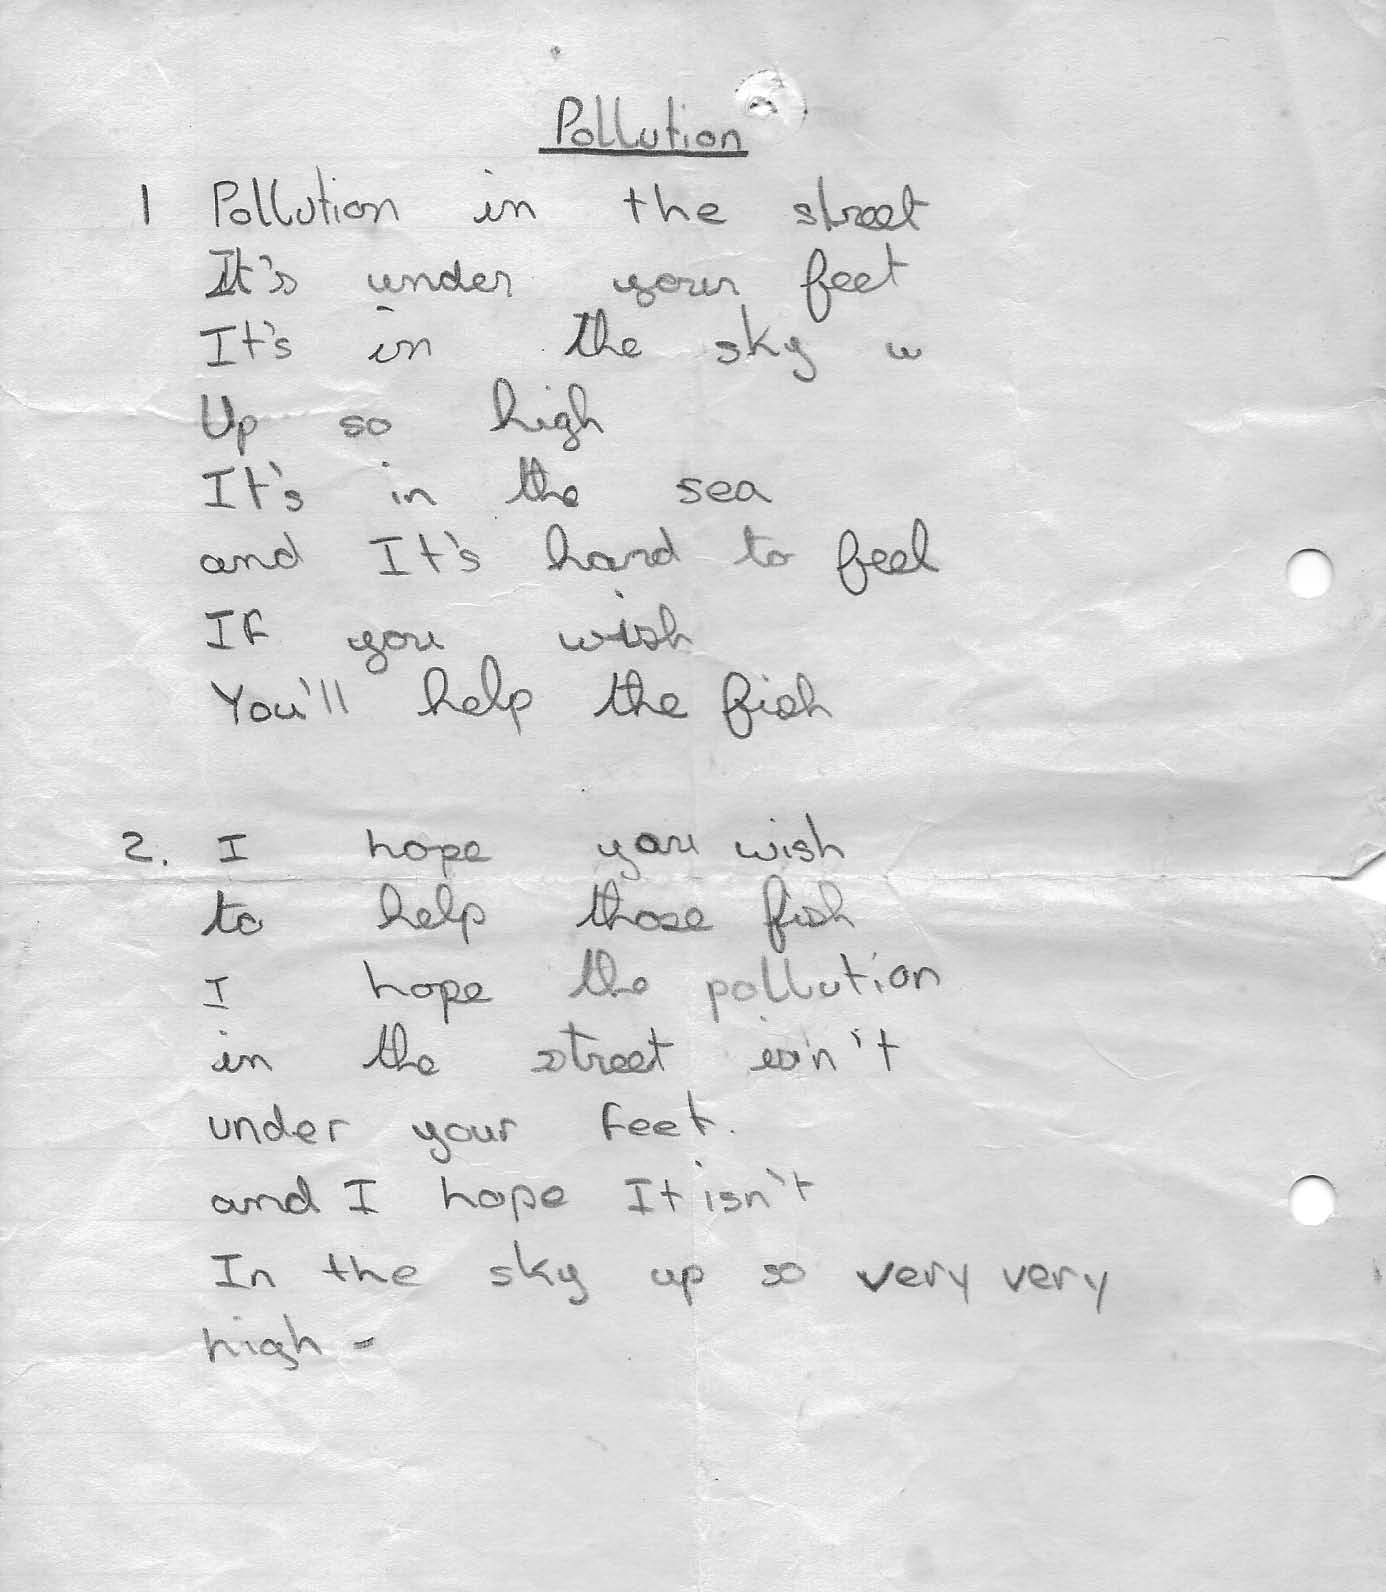 Pollution
1 Pollution in the street
It's under your feet
It's in the sky w
Up so high
It's in the sea
and It's hard to feel
If you wish
You'll help the fish
2. I hope you wish
to help those fish
I hope the pollution
in the street isn't
under your feet.
and I hope It isn't
In the sky up so very very
high -